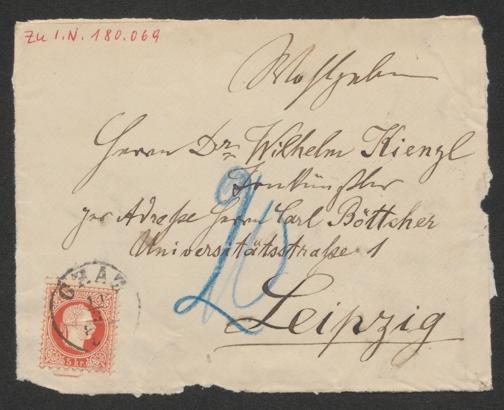 Zu I.N. 180.069
Wohlgeboren
Herrn Dr. Wilhelm Kienzl
Tonkünstler
per Adresse Herrn Carl Böttcher
Universitätsstraße 1
20
Leipzig
GRAZ
5 kr.